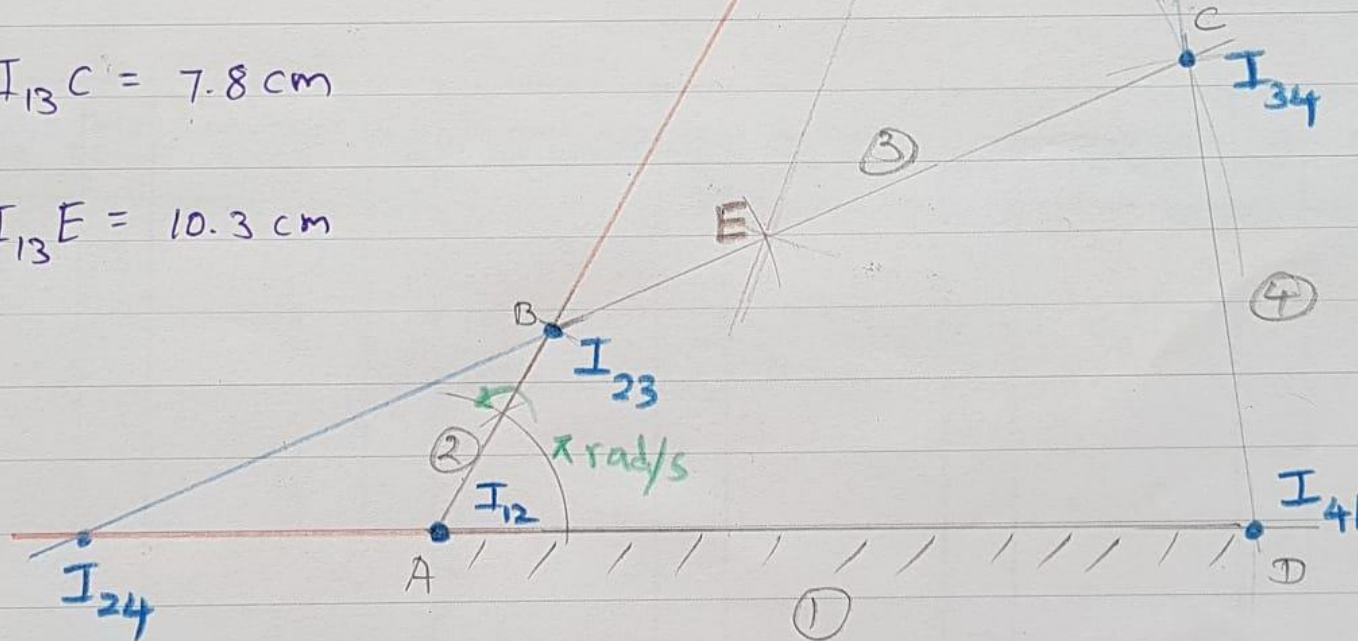 I13 C = 7.8 cm
I13 E = 10.3 cm
C
I34
3
E
4
B
I23
2
π rad/s
I12
I41
A
D
I24
1